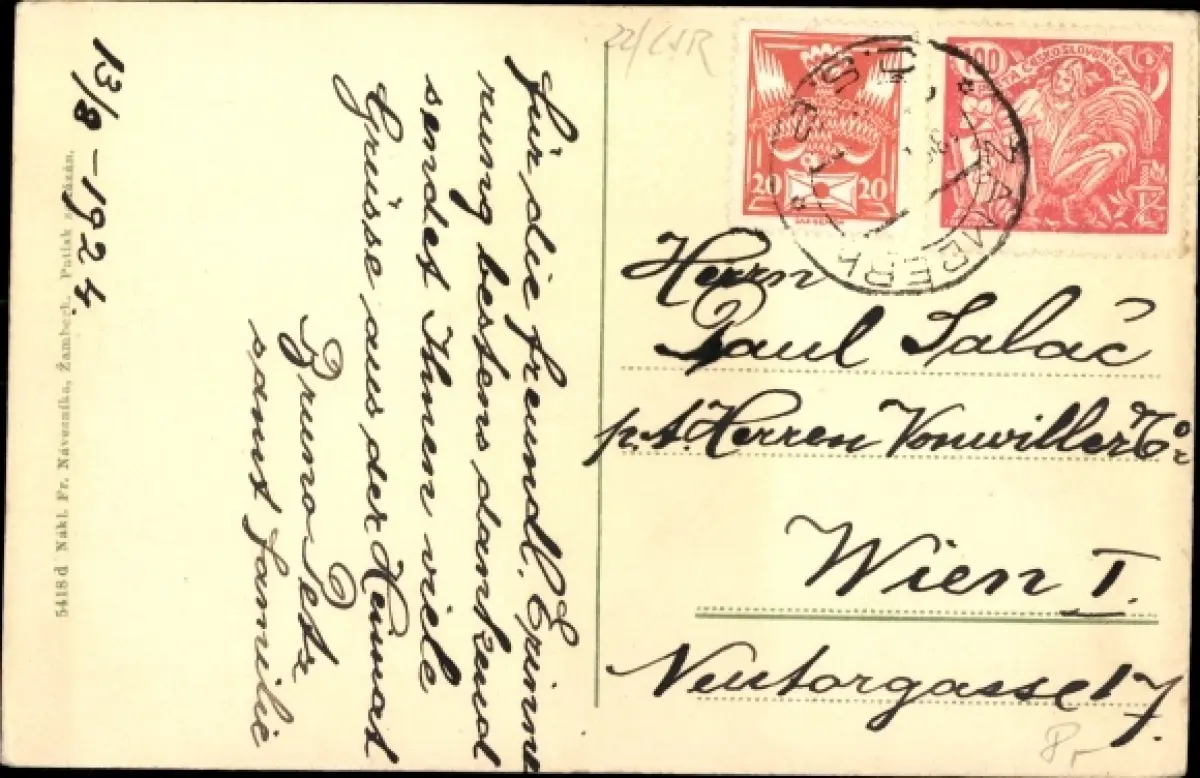 13/8 - 1924.
für die freundl. Erinne
rung bestens dankend
sendet Ihnen viele
Grüsse aus der Heimat
Bruno Petz
samt Familie
5418 d Nákl. Fr. Návezníka, Žamberk.
22/ČSR
20 20
100
ŽAMBERK
Herrn
Paul Salač
p. A. Herren Vonwiller & Co
Wien I.
Neutorgasse 17.